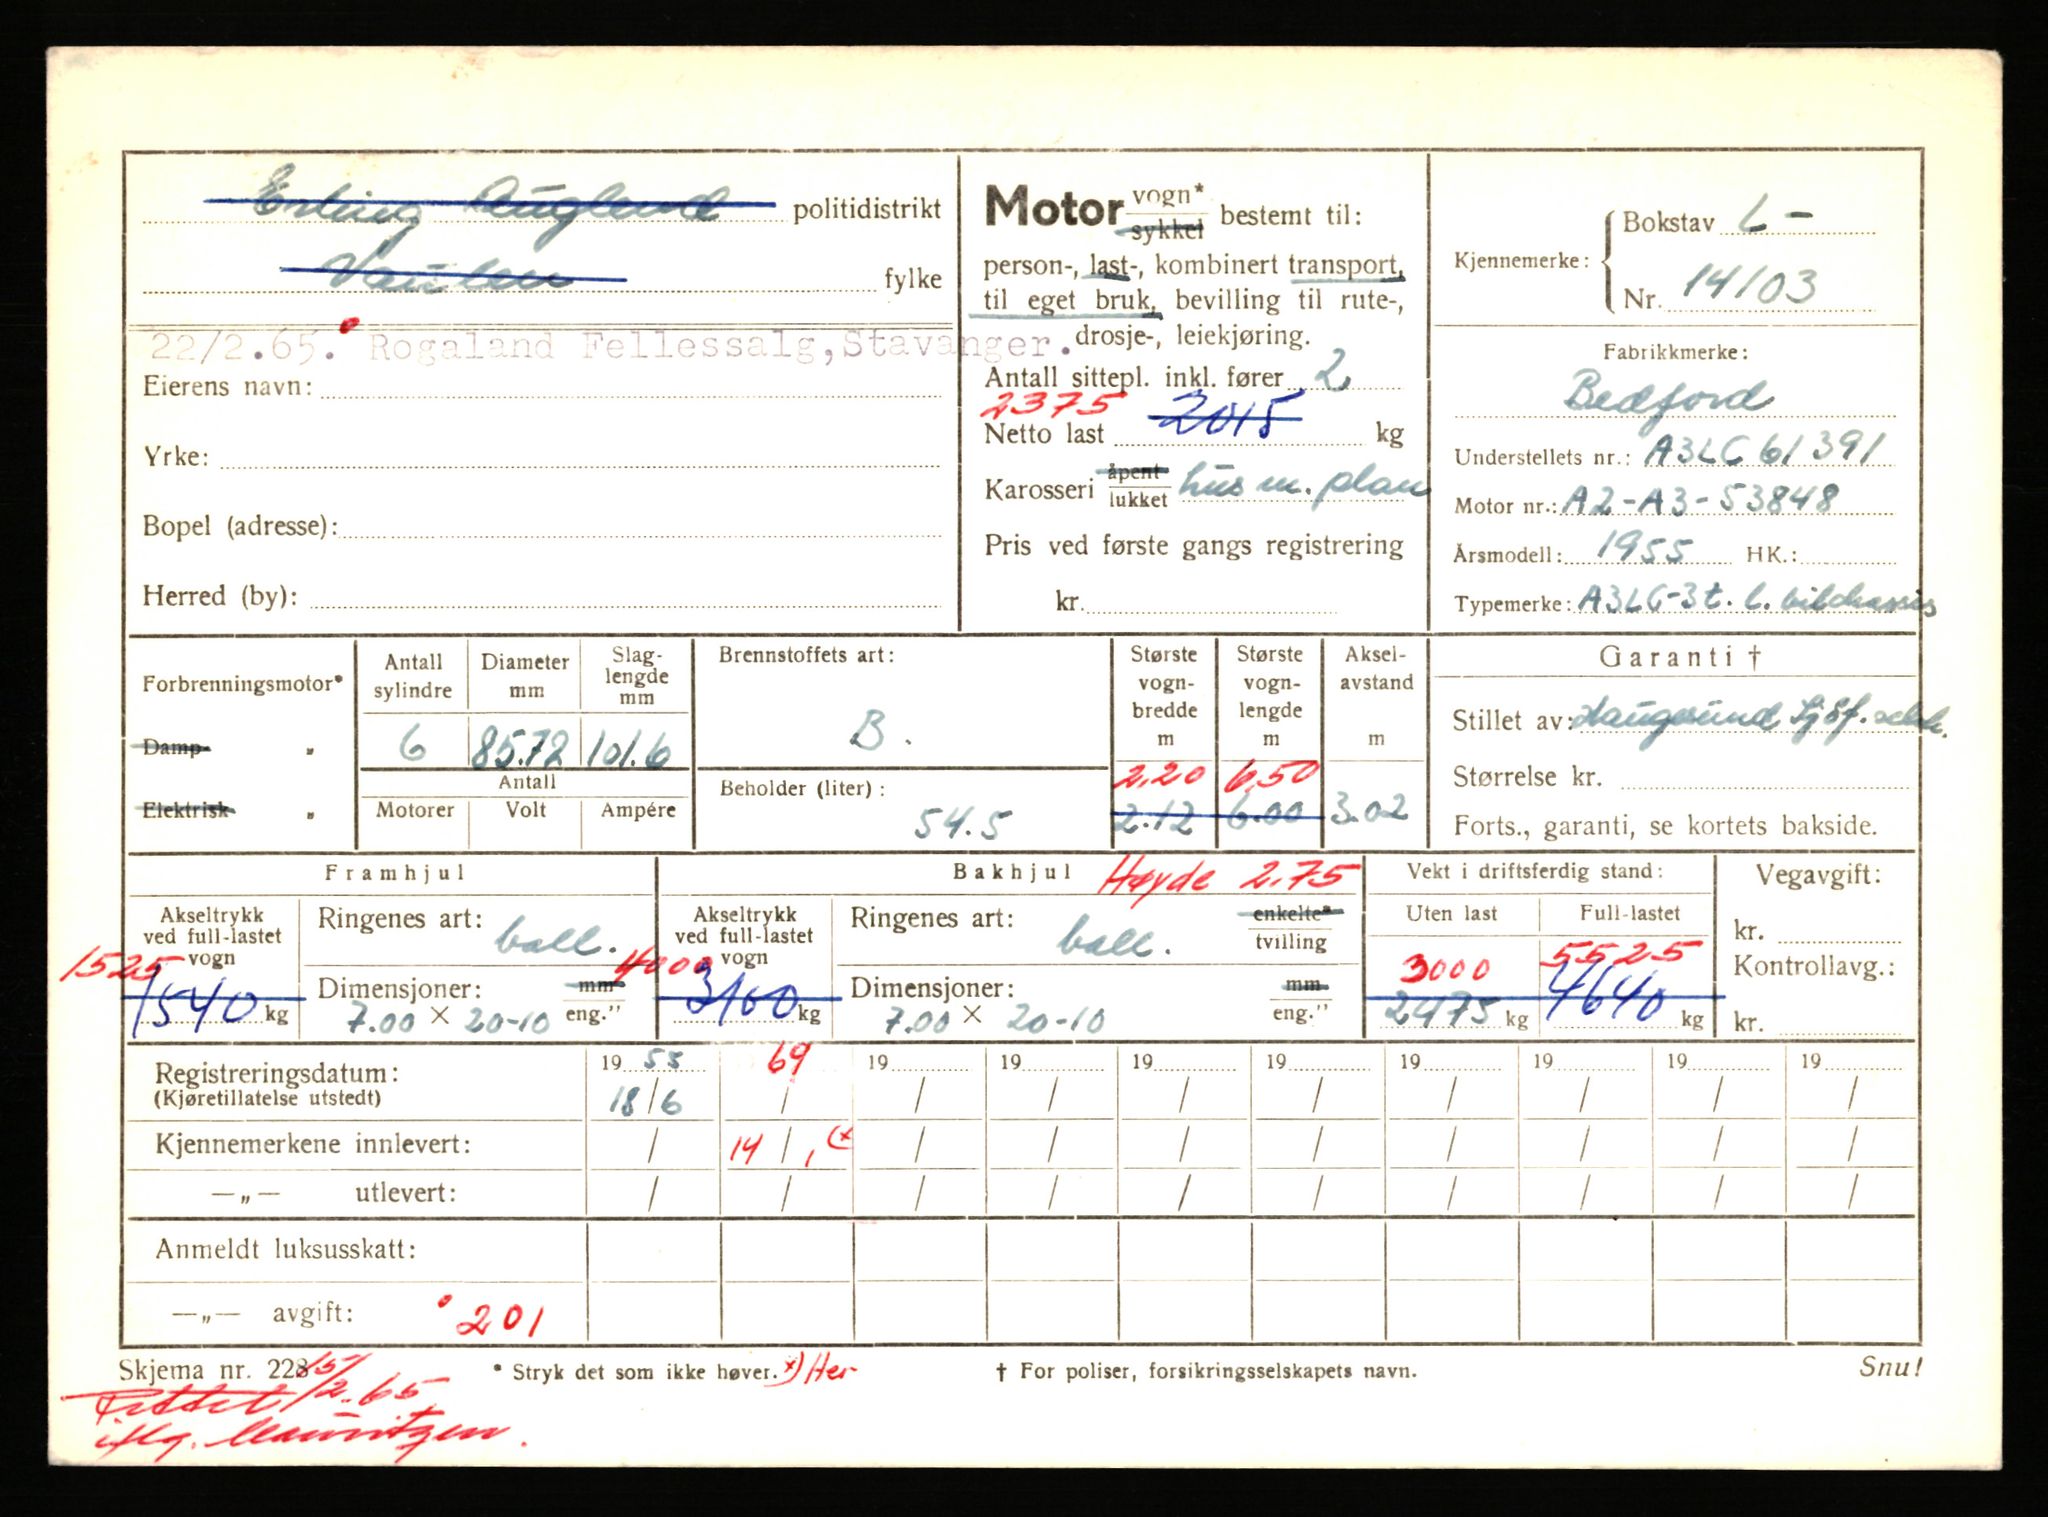 Erling Auglend politidistrikt
Vaulen fylke
22/2.65. Rogaland Fellessalg, Stavanger.
Eierens navn:
Yrke:
Bopel (adresse):
Herred (by):
Motor vogn* sykkel bestemt til:
person-, last-, kombinert transport,
til eget bruk, bevilling til rute-,
drosje-, leiekjøring.
Antall sittepl. inkl. fører 2
2375
Netto last 2015 kg
Karosseri åpent lukket hus m. plan
Pris ved første gangs registrering
kr.
Kjennemerke: Bokstav L-
Nr. 14103
Fabrikkmerke:
Bedford
Understellets nr.: A3LC 61391
Motor nr.: A2-A3-53848
Årsmodell: 1955 HK.:
Typemerke: A3LC-3t. l. bilchassis
Forbrenningsmotor*
Damp- „
Elektrisk „
Antall sylindre 6
Diameter mm 85.72
Slag-lengde mm 101.6
Antall
Motorer Volt Ampére
Brennstoffets art:
B.
Beholder (liter):
54.5
Største vogn-bredde m 2.20 2.12
Største vogn-lengde m 6.50 6.00
Aksel-avstand m 3.02
Garanti †
Stillet av: Haugesund Sjøf.
Størrelse kr.
Forts., garanti, se kortets bakside.
Framhjul
Akseltrykk ved full-lastet vogn
1525
1540 kg
Ringenes art: ball.
Dimensjoner: mm eng."
7.00 × 20-10
Bakhjul Høyde 2.75
Akseltrykk ved full-lastet vogn
4000
3100 kg
Ringenes art: ball. enkelte* tvilling
Dimensjoner: mm eng."
7.00 × 20-10
Vekt i driftsferdig stand:
Uten last Full-lastet
3000 5525
2475 kg 4640 kg
Vegavgift:
kr.
Kontrollavg.:
kr.
Registreringsdatum: 19 55 69 19 19 19 19 19 19 19 19
(Kjøretillatelse utstedt) 18/6 / / / / / / / / /
Kjennemerkene innlevert: / 14/1 (x / / / / / / / /
—„— utlevert: / / / / / / / / / /
Anmeldt luksusskatt:
—„— avgift: 201
Skjema nr. 228
* Stryk det som ikke høver. x) Her
† For poliser, forsikringsselskapets navn.
Snu!
15/2.65
iflg. Mauritzen.